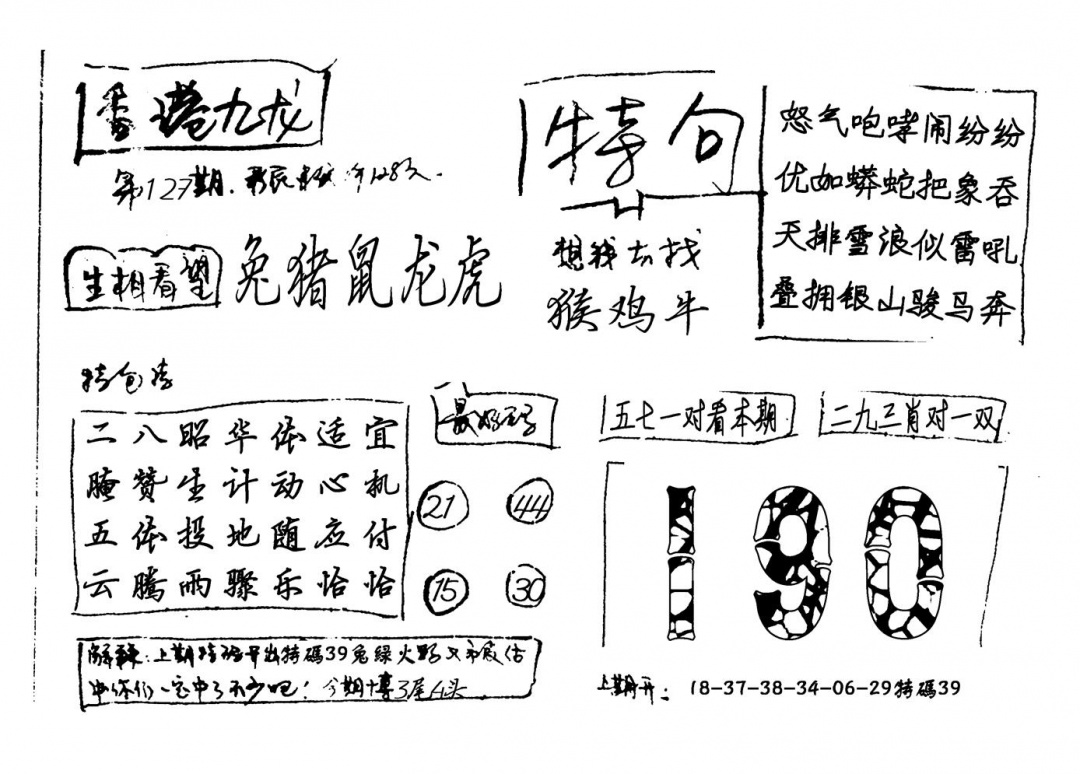 香港九龙
第127期.
生相看望 兔猪鼠龙虎
特句
想我去找
猴鸡牛
怒气咆哮闹纷纷
优如蟒蛇把象吞
天排雪浪似雷吼
叠拥银山骏马奔
二八昭华依适宜
腌赞生计动心机
五体投地随应付
云腾雨骤乐恰恰
21 44
15 30
五七一对看本期
二九三肖对一双
190
上期 开出特碼39兔绿火
中你们一定中了不少吧! 今期博3尾4头
上期开: 18-37-38-34-06-29特碼39